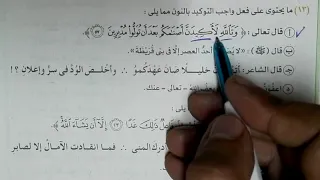 (١٣) ما يحتوى على فعل واجب التوكيد بالنون مما يلى :
أ قال تعالى : ﴿ وَتَاللَّهِ لَأَكِيدَنَّ أَصْنَامَكُم بَعْدَ أَن تُوَلُّوا مُدْبِرِينَ ﴾
ب قال ﷺ : « لا أحد العصر إلا فى بنى قريظة »
ج قال الشاعر : خليلًا صان عهدكمو وأخلص الود فى سر وإعلان ؟!
ذَٰلِكَ غَدًا ٢٣ إِلَّا أَن يَشَاءَ اللَّهُ ﴾
المنى فما انقادت الآمال إلا لصابر